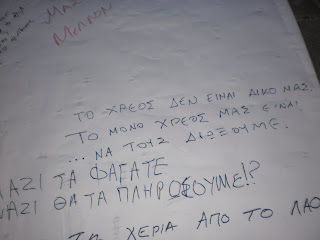 ΜΑΖ
ΜΕΛΛΟΝ
ΤΟ ΧΡΕΟΣ ΔΕΝ ΕΙΝΑΙ ΔΙΚΟ ΜΑΣ.
ΤΟ ΜΟΝΟ ΧΡΕΟΣ ΜΑΣ ΕΙΝΑΙ
... ΝΑ ΤΟΥΣ ΔΙΩΞΟΥΜΕ.
ΜΑΖΙ ΤΑ ΦΑΓΑΤΕ
ΜΑΖΙ ΘΑ ΤΑ ΠΛΗΡΩΣΟΥΜΕ!?
ΤΑ ΧΕΡΙΑ ΑΠΟ ΤΟ ΛΑΟ